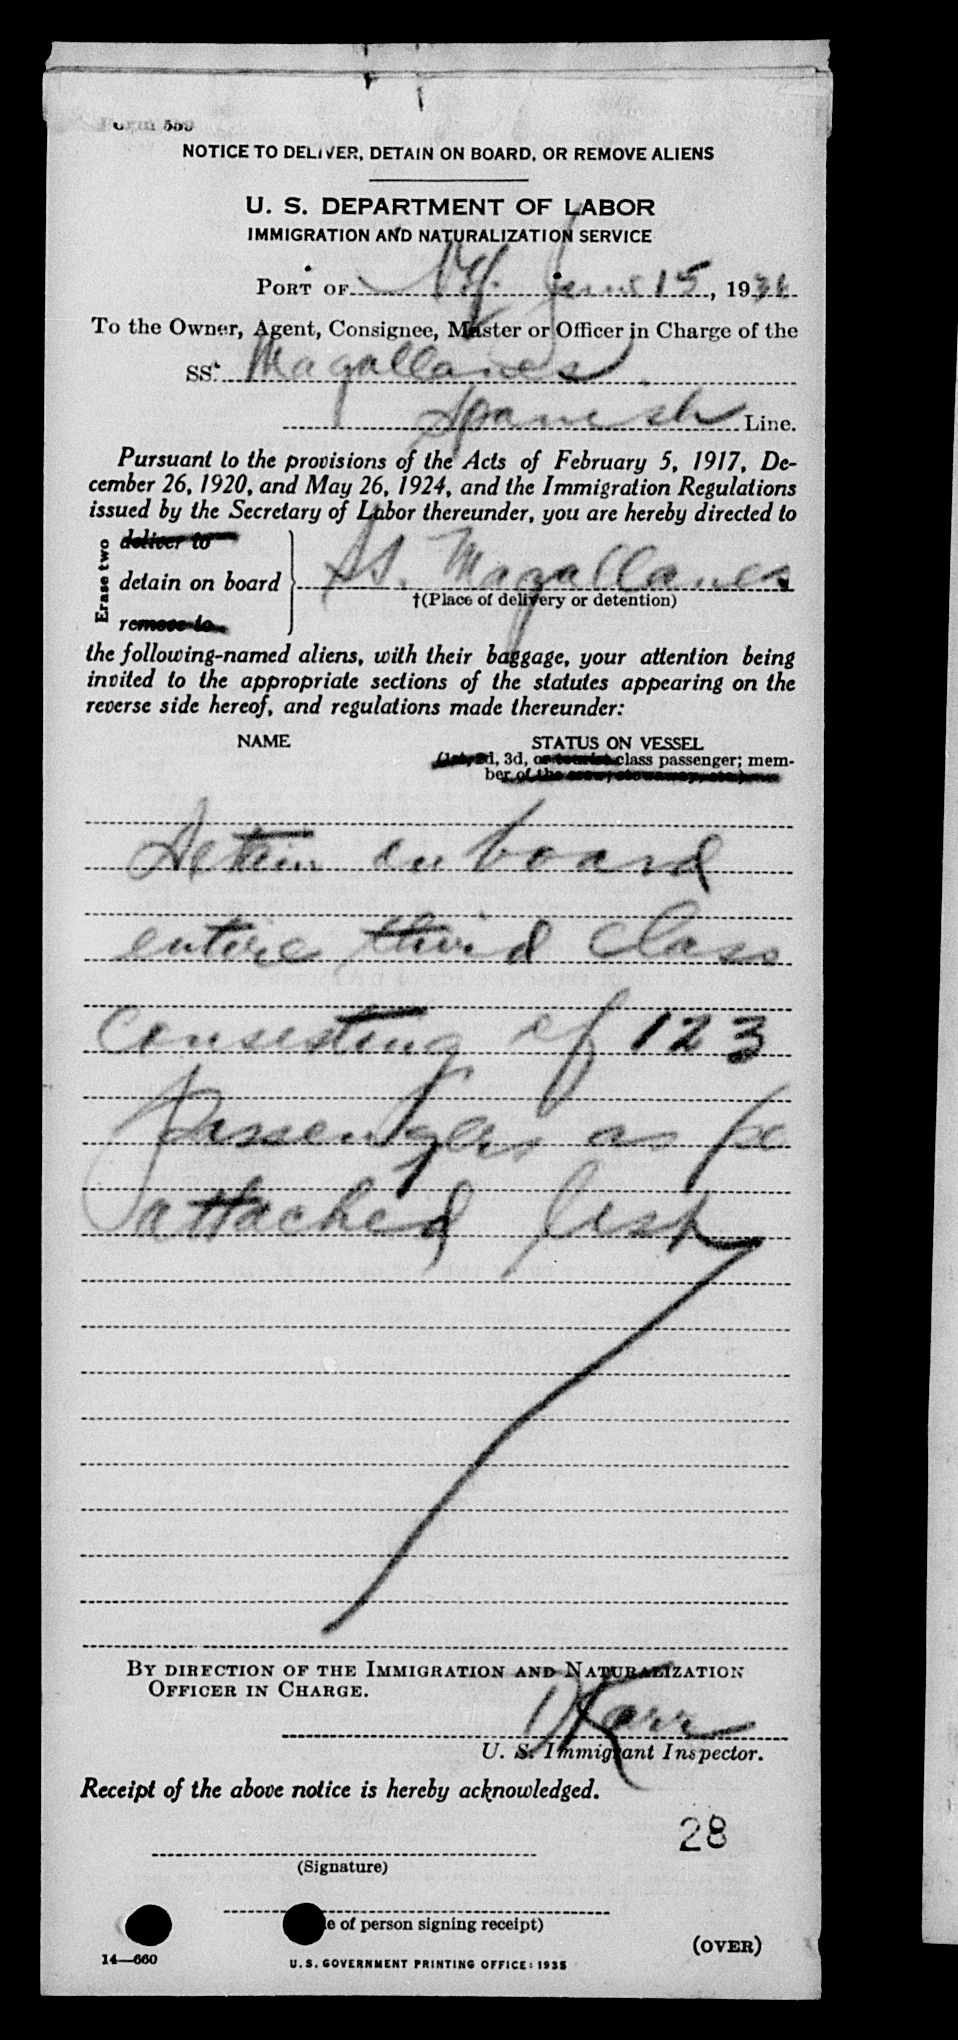 Form 559
NOTICE TO DELIVER, DETAIN ON BOARD, OR REMOVE ALIENS
U. S. DEPARTMENT OF LABOR
IMMIGRATION AND NATURALIZATION SERVICE
PORT OF N.Y. June 15, 1936
To the Owner, Agent, Consignee, Master or Officer in Charge of the
SS. Magallanes
Spanish Line.
Pursuant to the provisions of the Acts of February 5, 1917, De-
cember 26, 1920, and May 26, 1924, and the Immigration Regulations
issued by the Secretary of Labor thereunder, you are hereby directed to
Erase two
deliver to
detain on board } SS. Magallanes
†(Place of delivery or detention)
remove to
the following-named aliens, with their baggage, your attention being
invited to the appropriate sections of the statutes appearing on the
reverse side hereof, and regulations made thereunder:
NAME STATUS ON VESSEL
(1st, 2d, 3d, or tourist class passenger; mem-
ber of the crew; stowaway, etc.)
Detain on board
entire third class
consisting of 123
Passengers as pe
attached list
BY DIRECTION OF THE IMMIGRATION AND NATURALIZATION
OFFICER IN CHARGE.
DKarr
U. S. Immigrant Inspector.
Receipt of the above notice is hereby acknowledged.
28
(Signature)
e of person signing receipt)
(OVER)
14—660
U. S. GOVERNMENT PRINTING OFFICE: 1935